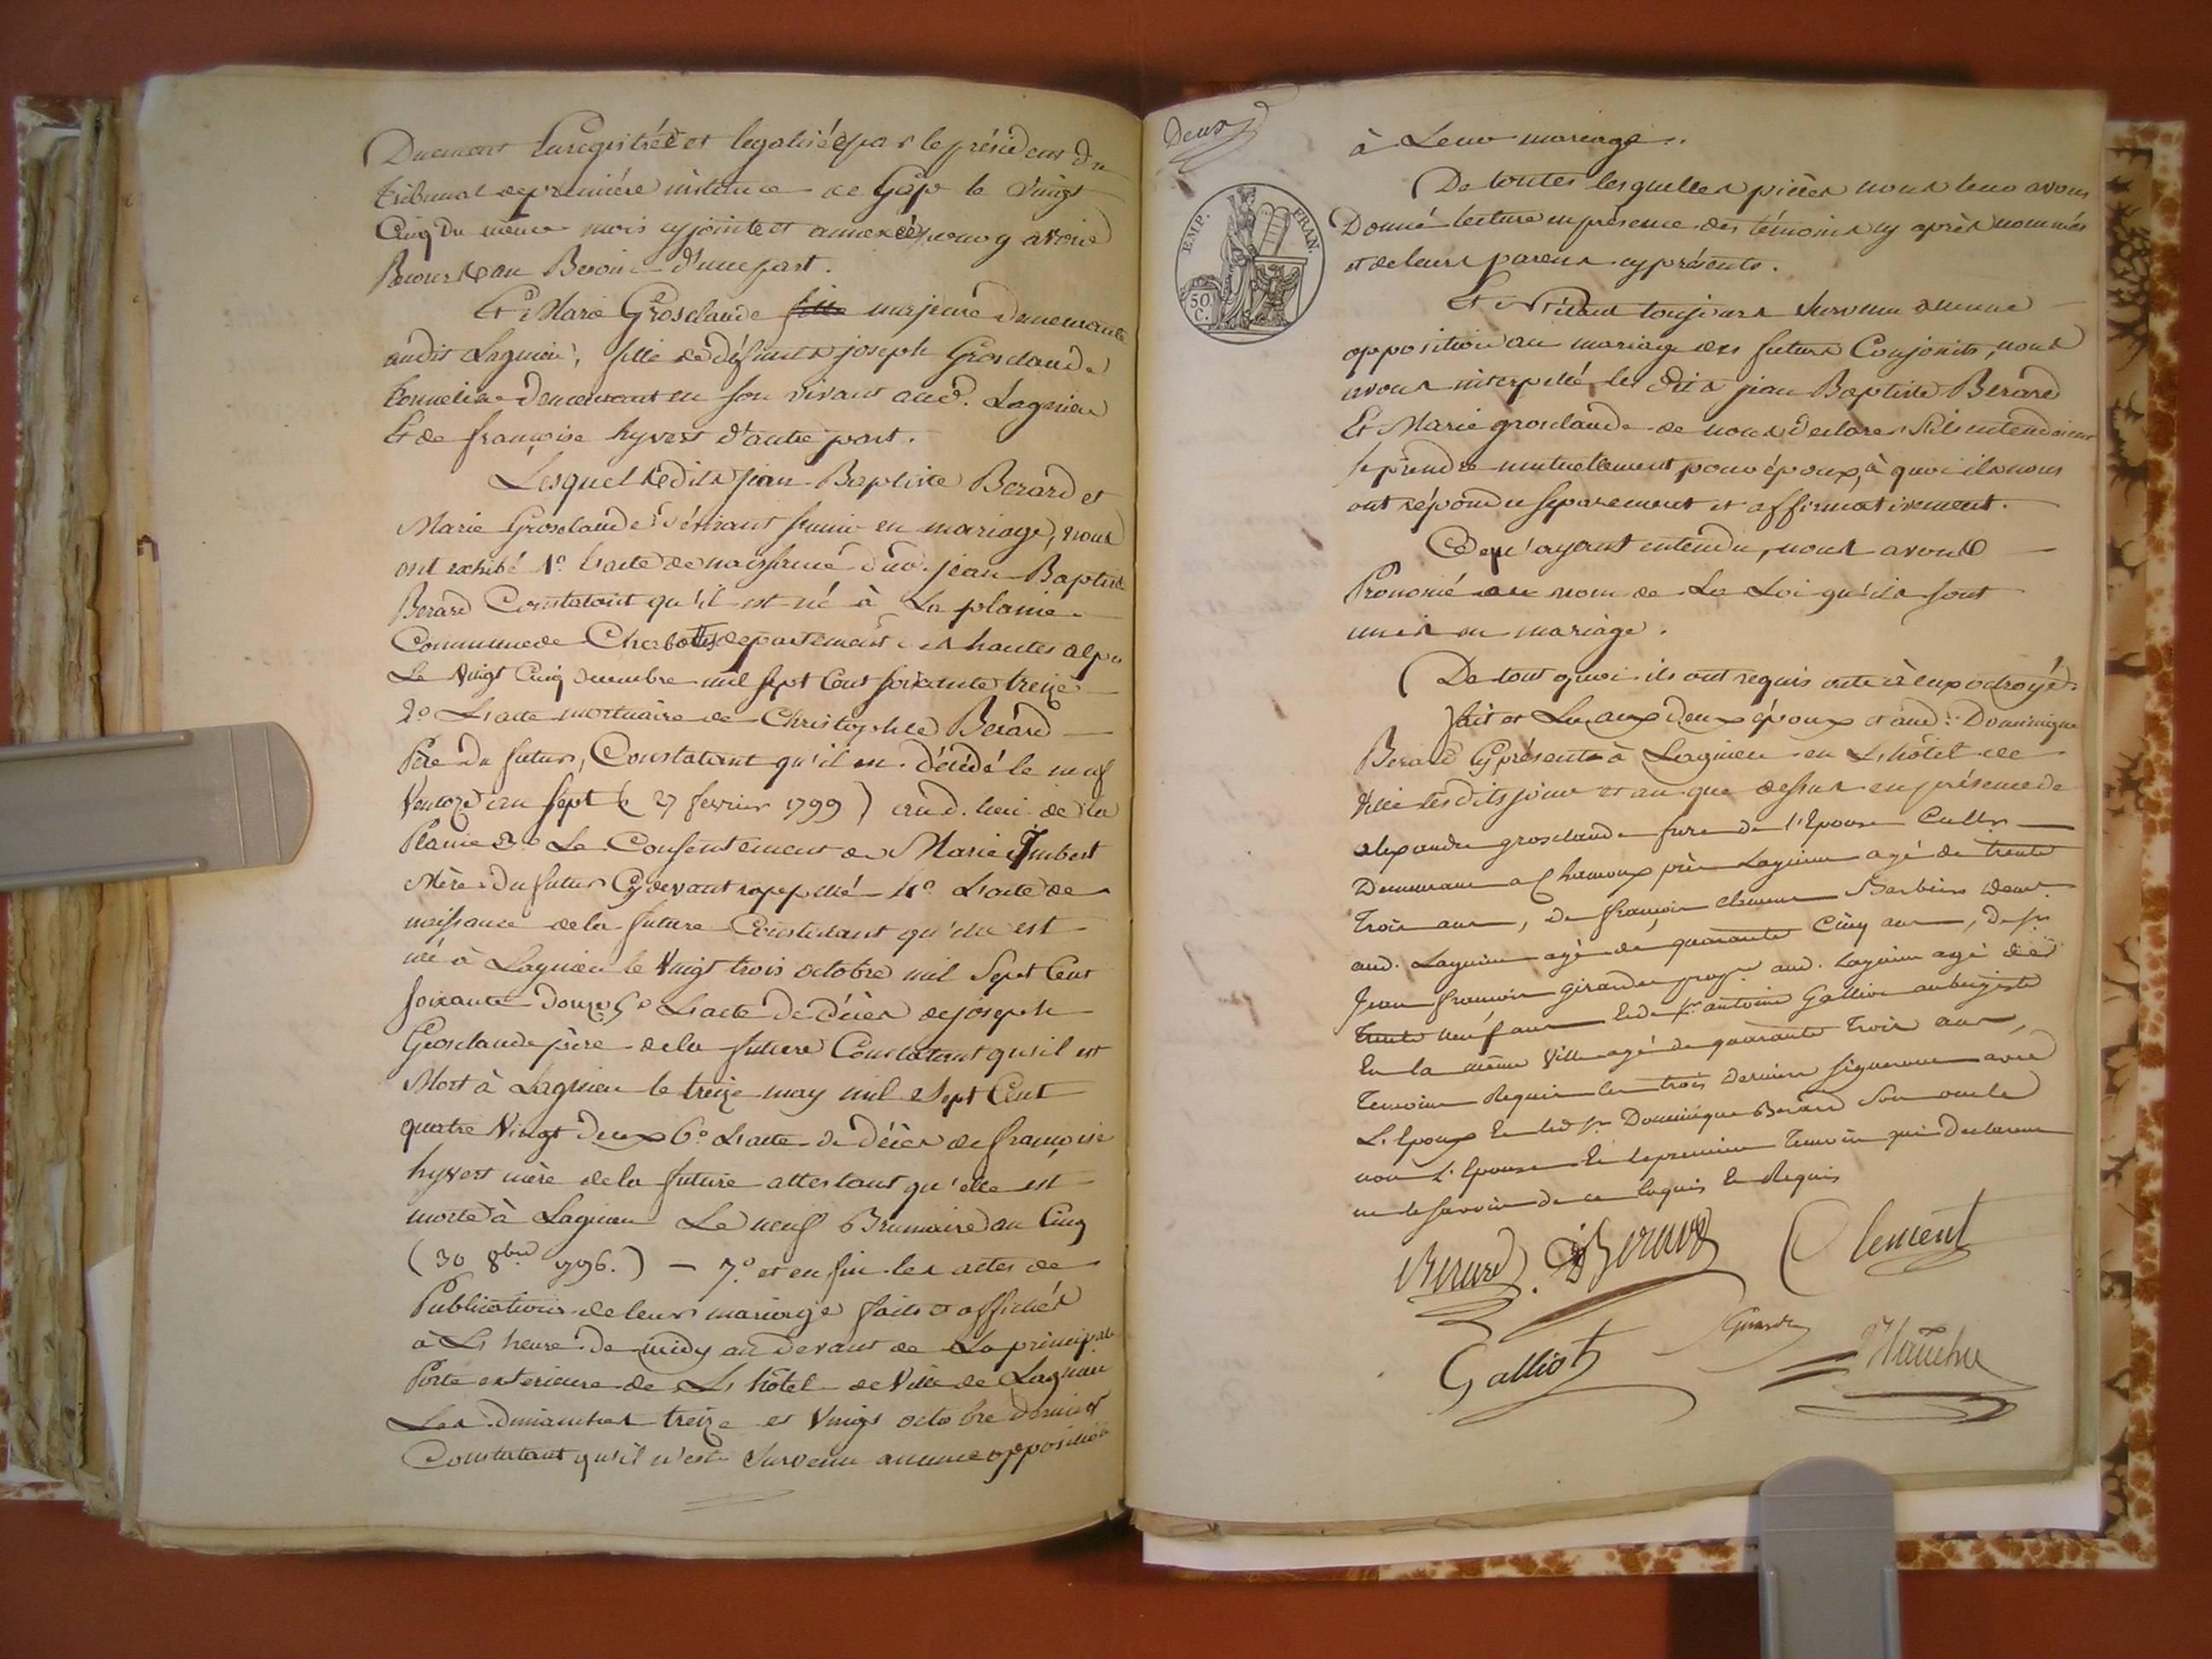 Duement Enregistrée et legalisée par le président du
tribunal de première instance de Gap le vingt
Cinq du même mois cyjointe et annexée pour y avoir
Recours au Besoin d'une part.
Et Marie Grosclaude fille majeure demeurante
audit Lagnieu, fille de défunts joseph Grosclaude
tonnelier demeurant en son vivant aud. Lagnieu
Et de françoise hyvert d'autre part.
Lesquels dits jean Baptiste Berard et
Marie Grosclaude désirant s'unir en mariage, nous
ont exhibé 1º L'acte de naissance dud. jean Baptiste
Berard Constatant qu'il est né à La plaine
Commune de Chabottes departement des hautes alpes
Le vingt Cinq decembre mil sept Cent soixante treize
2º L'acte mortuaire de Christophle Berard
Père du futur, Constatant qu'il est décédé le neuf
Ventoze an sept (27 fevrier 1799) aud. lieu de la
Plaine 3º Le Consentement de Marie Imbert
Mère du futur Cy devant rappellé 4º L'acte de
naissance de la future Constatant qu'elle est
née à Lagnieu le vingt trois octobre mil Sept Cent
soixante douze 5º L'acte de décès de joseph
Grosclaude père de la future Constatant qu'il est
Mort à Lagnieu le treize may mil Sept Cent
quatre Vingt deux 6º L'acte de décès de françoise
hyvert mère de la future attestant qu'elle est
morte à Lagnieu Le neuf Brumaire an Cinq
(30 8bre 1796.) — 7º et enfin les actes de
Publications de leur mariage faits et affichés
à L'heure de midy au devant de La principale
Porte exterieure de L'hôtel de Ville de Lagnieu
Les dimanches treize et vingt octobre dernier
Constatant qu'il n'est Survenu aucune opposition
Deux
EMP. FRAN.
50 C.
à Leur mariage.
De toutes lesquelles pièces nous leur avons
Donné lecture en présence des témoins cy après nommés
et de leurs parens cy présents.
Et N'étant toujours survenu aucune
opposition au mariage des futurs Conjoints, nous
avons interpellé les dits jean Baptiste Berard
Et Marie grosclaude de nous declarer s'ils entendoient
se prendre mutuellement pour époux, à quoi ils nous
ont répondu separement et affirmativement.
Ce qu'ayant entendu, nous avons
Prononcé au nom de La Loi qu'ils sont
unis en mariage.
De tout quoi ils ont requis acte à eux octroyé.
fait et Lu aux deux époux et aud. Dominique
Berard cy présent à Lagnieu en L'hôtel de
Ville lesdits jour et an que dessus en présence de
alexandre grosclaude frere de l'Epouse Cultr
Demeurant a Chamoux près Lagnieu agé de trente
Trois ans, de françois clement Barbier demt
aud. Lagnieu agé de quarante Cinq ans, de sr
Jean françois girardin propre aud. Lagnieu agé de
Trente neuf ans Et de sr antoine Galliot aubergiste
En la même Ville agé de quarante Trois ans,
Temoins Requis les trois derniers signeront avec
L'Epoux Et led sr Dominique Berard Son oncle
non L'Epouse Et le premier Temoin qui declarent
ne le savoir de ce Enquis Et Requis
Berard DBerard Clement
Galliot Girardin